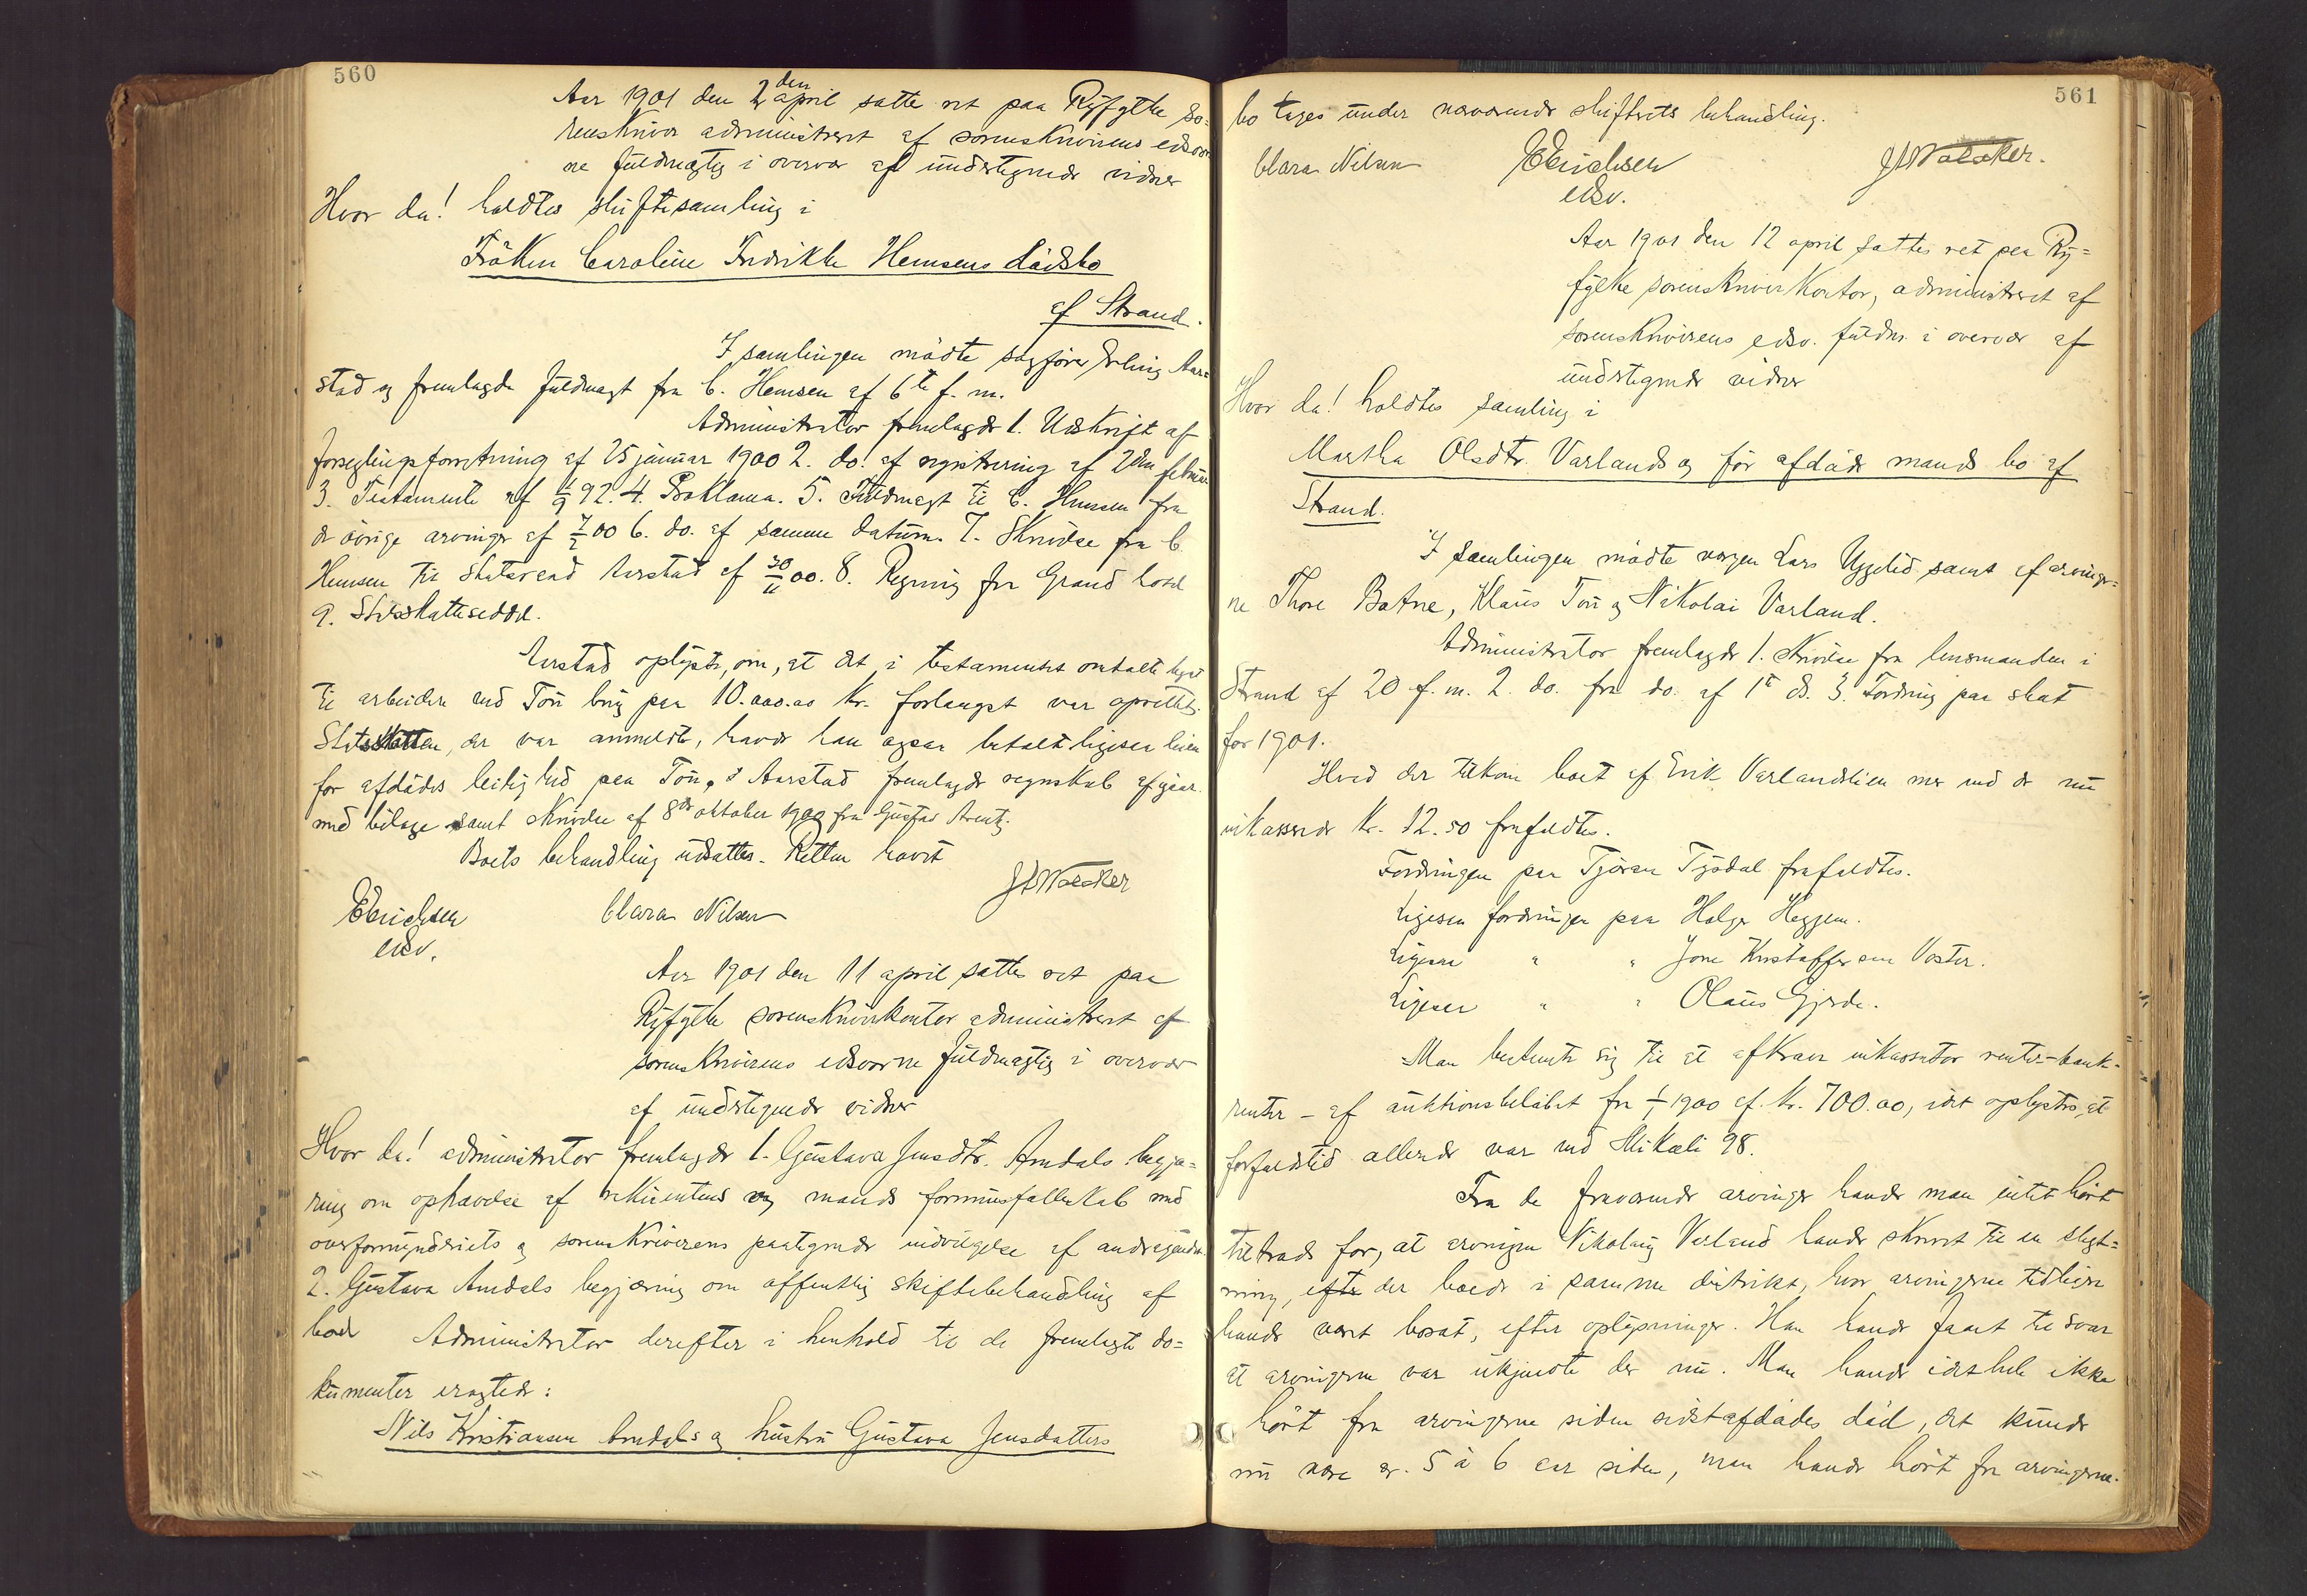 560
Aar 1901 den 2den april sattes ret paa Ryfylke so=
renskriver administreret af sorenskriverens edsvor
ne fuldmægtig i overvær af undertegnede vidner
Hvor da! holdtes skiftesamling i
Fröken Caroline Fredrikke Hemsens dödsbo
af Strand.
I samlingen mödte sagförer Erling Aar=
stad og fremlagde fuldmagt fra C. Hemsen af 6te f. m.
Administrator fremlagde 1. Udskrift af
forseglingsforretning af 25 januar 1900 2. do. af registrering af 2den februar
3. Testamente af 1/9 92. 4. Proklama. 5. Fuldmagt til C. Hemsen fra
de övrige arvinger af 7/2 00 6. do. af samme datum. 7. Skrivelse fra C.
Hemsen til Aarstad af 30/11 00. 8. Regning fra Grand hotel
9. Skatteseddel.
Aarstad oplyste, om, at det i testamentet omtalte legat
til arbeidere ved Tou brug paa 10.000.00 kr. forlængst var oprettet.
, der var anmeldt, havde han ogsaa betalt ligesaa leien
for afdödes leilighed paa Tou. Aarstad fremlagde regnskab af igaar
med bilage samt skrivelse af 8de oktober 1900 fra Gustav Arentz.
Boets behandling udsattes. Retten hævet
EErichsen Clara Nilsen
edsv.
Aar 1901 den 11 april sattes ret paa
Ryfylke sorenskriverkontor administreret af
sorenskriverens edsvorne fuldmægtig i overvær
af undertegnede vidner
Hvor da! administrator fremlagde 1. Gustava Jensdtr. Amdals begjæ=
ring om ophævelse af rekvirentens og mands formuesfællesskab med
overformynderiets og sorenskriverens paategnede indvilgelse af andragendet.
2. Gustava Amdals begjæring om offentlig skiftebehandling af
boet Administrator derefter i henhold til de fremlagte do=
kumenter eragtede:
Nils Kristiansen Amdals og hustru Gustava Jensdatters
561
bo tages under nærværende skifterets behandling.
Clara Nilsen EErichsen
edsv.
Aar 1901 den 12 april sattes ret paa Ry=
fylke sorenskriverkontor, administreret af
sorenskriverens edsv. fuldm. i overvær af
undertegnede vidner
Hvor da! holdtes samling i
Martha Olsdtr. Varlands og för afdöde mands bo af
Strand.
I samlingen mödte værgen Lars samt af arvinger=
ne Thore Botne, Klaus Tou og Nikolai Varland.
Administrator fremlagde 1. Skrivelse fra lensmanden i
Strand af 20 f. m. 2. do. fra do. af 1te ds. 3. Fordring paa skat
for 1901.
Hvad der tilkom boet af Erik Varlandslien mer end de nu
inkasserede kr. 12.50 frafaldtes.
Fordringen paa Tjöran Tysdal frafaldtes.
Ligesaa fordringen paa Holger Heggem.
Ligesaa " " Jone Kristoffersen Voster.
Ligesaa " " Olaus Gjerde.
Man besluttede sig til at afkræve inkassator renter – bank-
renter – af auktionsbelöbet fra 1/1 1900 af kr. 700.00, idet oplystes, at
forfaldstid allerede var ved Mikæli 98.
Fra de fraværende arvinger havde man intet hört
tiltrods for, at arvingen Nikolai Varland havde skrevet til en slegt=
ning, der boede i samme distrikt, hvor arvingerne tidligere
havde været bosat, efter oplysninger. Han havde faaet til svar
at arvingerne var ukjendte der nu. Man havde idethele ikke
hört fra arvingerne siden sidstafdödes död, det kunde
nu være ca. 5 à 6 aar siden, man havde hört fra arvingerne.